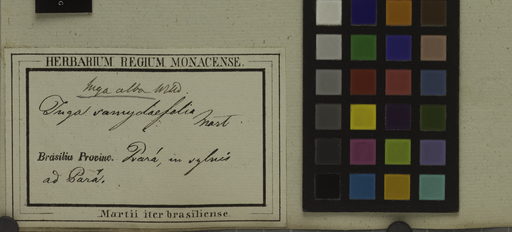 HERBARIUM REGIUM MONACENSE.
Inga alba Willd
Inga samydaefolia
Mart.
Brasilia Provinc. Pará, in sylvis
ad Pará.
Martii iter brasiliense